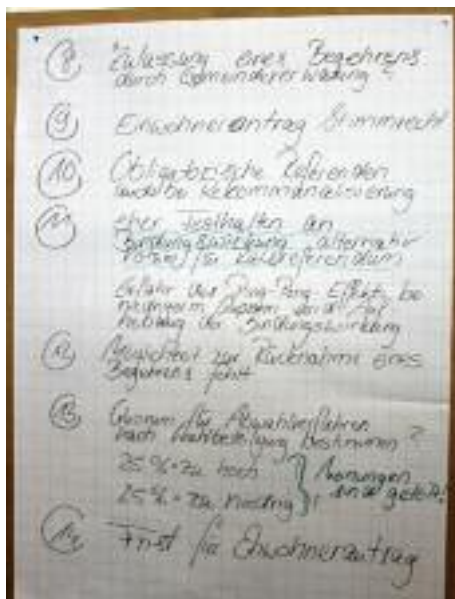 8 Zulassung eines Begehrens
durch Gemeindeverwaltung?
9 Einwohnerantrag Stimmrecht
10 Obligatorische Referenden
auch bei Rekommunalisierung
11 eher Festhalten an
Bindungswirkung alternativ
für Ratsreferendum
Gefahr des Ping-Pong Effekt bei
und Auf
hebung der Bindungswirkung
12 Möglichkeit zur Rücknahme eines
Begehrens fehlt
13 Quorum für Abwahlverfahren
nach Wahlbeteiligung bestimmen?
25 % = zu hoch
25 % = zu niedrig
Meinungen
sind geteilt!
14 Frist für Einwohnerantrag